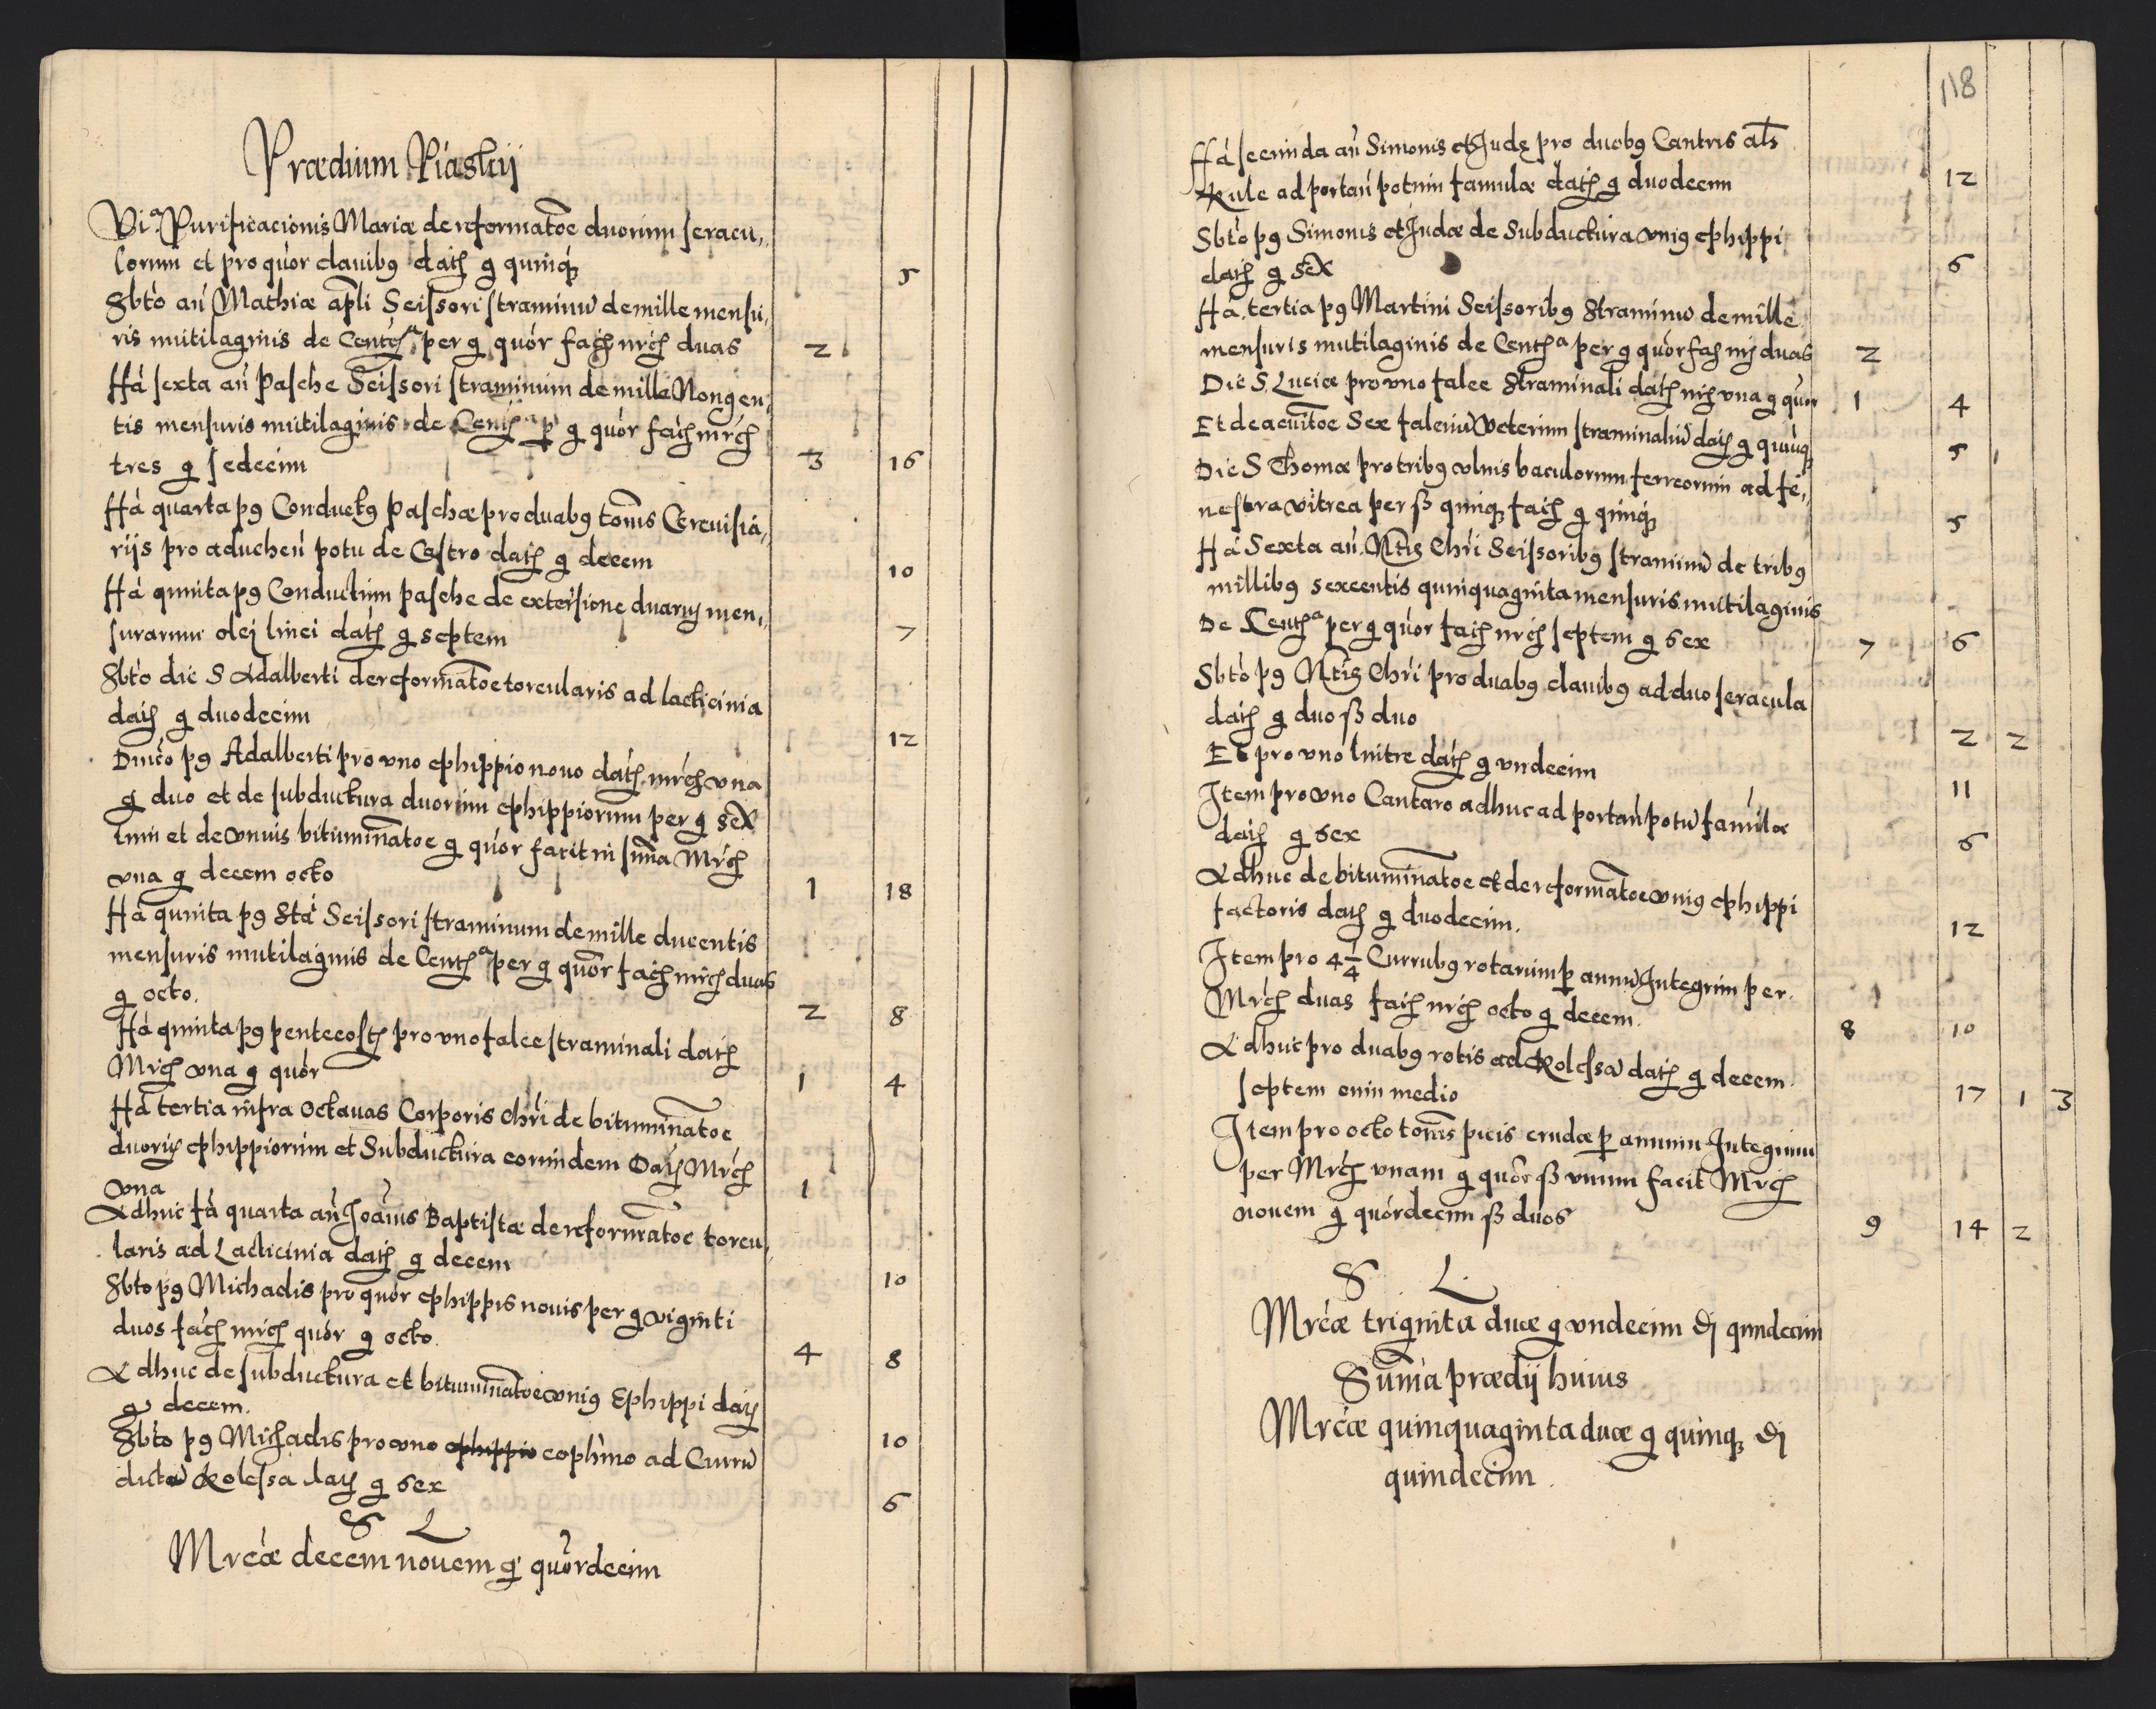 Prædium Piaskij
Via. Purificacionis Mariæ de reformatōe duorum seracu„
lorum et pro quòr clauibꝯ datꝫ g quinqꝫ 5
Sbto añ Mathiæ apli Scissori straminū de mille mensu„
ris mutilaginis de Centꝫa per g quòr facꝫ mrcꝫ duas 2
ffà sexta añ Pasche Scissori straminum de mille Nongen„
tis mensuris mutilaginis de Centꝫa p g quòr facꝫ mrcꝫ
tres g sedecim 3 16
ffà quarta pꝯ Conductꝯ Paschæ pro duabꝯ tonis Cereuisia„
rijs pro aduehen potu de Castro datꝫ g decem 10
ffà quinta pꝯ Conductum Pasche de extersione duarꝫ men„
surarum olej linei datꝫ g septem 7
Sbto die S Adalberti de reformatōe torcularis ad lacticinia
datꝫ g duodecim 12
Dnico pꝯ Adalberti pro vno ephippio nouo datꝫ mrcꝫ vna
g duo et de subductura duorum ephippiorum per g sex
tum et de vnius bituminatōe g quòr facit in suma Mrcꝫ
vna g decem octo 1 18
ffà quinta pꝯ Sta Scissori straminum de mille ducentis
mensuris mutilaginis de Centꝫa per g quòr facꝫ mrcꝫ duas
g octo. 2 8
ffà quinta pꝯ pentecostꝫ pro vno falce straminali datꝫ
Mrcꝫ vna g quòr 1 4
ffà tertia infra Octauas Corporis Chri de bituminatōe
duorꝫ ephippiorum et Subductura eorundem Datꝫ Mrcꝫ
vna 1
Adhuc fà quarta añ Joānis Baptistæ de reformatōe torcu„
laris ad Lacticinia datꝫ g decem 10
Sbto pꝯ Michaelis pro quòr ephippis nouis per g viginti
duos facꝫ mrcꝫ quòr g octo. 4 8
Adhuc de subductura et bituminatōe vniꝯ Ephippi datꝫ
g decem. 10
Sbto pꝯ Michaelis pro vno ephippio cophino ad Currū
dictū Kolessa datꝫ g sex 6
S L
Mrcæ decem nouem g quòrdecim
118
ffà secunda añ Simonis et Judę pro duobꝯ Cantris als
Rule ad portañ potum famulæ datꝫ g duodecim 12
Sbto pꝯ Simonis et Judæ de Subductura vniꝯ ephippi
datꝫ g sex 6
ffà tertia pꝯ Martini Scissoribꝯ Straminū de mille
mensuris mutilaginis de Centꝫa per g quòr facꝫ mꝫ duas 2
Die S. Luciæ pro vno falce Straminali datꝫ mꝫ vna g quòr 1 4
Et de acuitōe Sex falciū veterum straminaliū datꝫ g quinqꝫ 5
Die S Thomæ pro tribꝯ vlnis baculorum ferreorum ad fe„
nestra vitrea per ß quinqꝫ facꝫ g quinqꝫ 5
ffà Sexta añ Ntis Chri Scissoribꝯ straminū de tribꝯ
millibꝯ sexcentis quinquaginta mensuris mutilaginis
De Centꝫa per g quòr facꝫ mrcꝫ septem g sex 7 6
Sbto pꝯ Ntis Chri pro duabꝯ clauibꝯ ad duo seracula
datꝫ g duo ß duo 2 2
Et pro vno lintre datꝫ g vndecim 11
Item pro vno Cantaro adhuc ad portañ potū famulæ
datꝫ g sex 6
Adhuc de bituminatōe et de reformatōe vniꝯ ephippi
factoris datꝫ g duodecim. 12
Item pro 4 1/4 Currubꝯ rotarum p annū Integrum per
Mrcꝫ duas facꝫ mrcꝫ octo g decem. 8 10
Adhuc pro duabꝯ rotis ad Kolessā datꝫ g decem
septem cum medio 17 1 3
Item pro octo tonis picis crudæ p annum Integrum
per Mrcꝫ vnam g quòr ß vnum facit Mrcꝫ
nouem g quòrdecim ß duos 9 14 2
S L.
Mrcæ triginta duæ g vndecim đ quindecim
Suma prædij huius
Mrcæ quinquaginta duæ g quinqꝫ đ
quindecim.